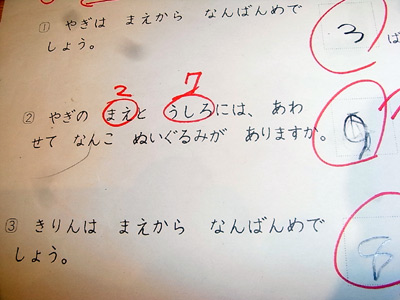 ① やぎは まえから なんばんめで 3 ば
しょう。
2 7
② やぎの まえと うしろには、 あわ
せて なんこ ぬいぐるみが ありますか。 9
③ きりんは まえから なんばんめで 8
しょう。